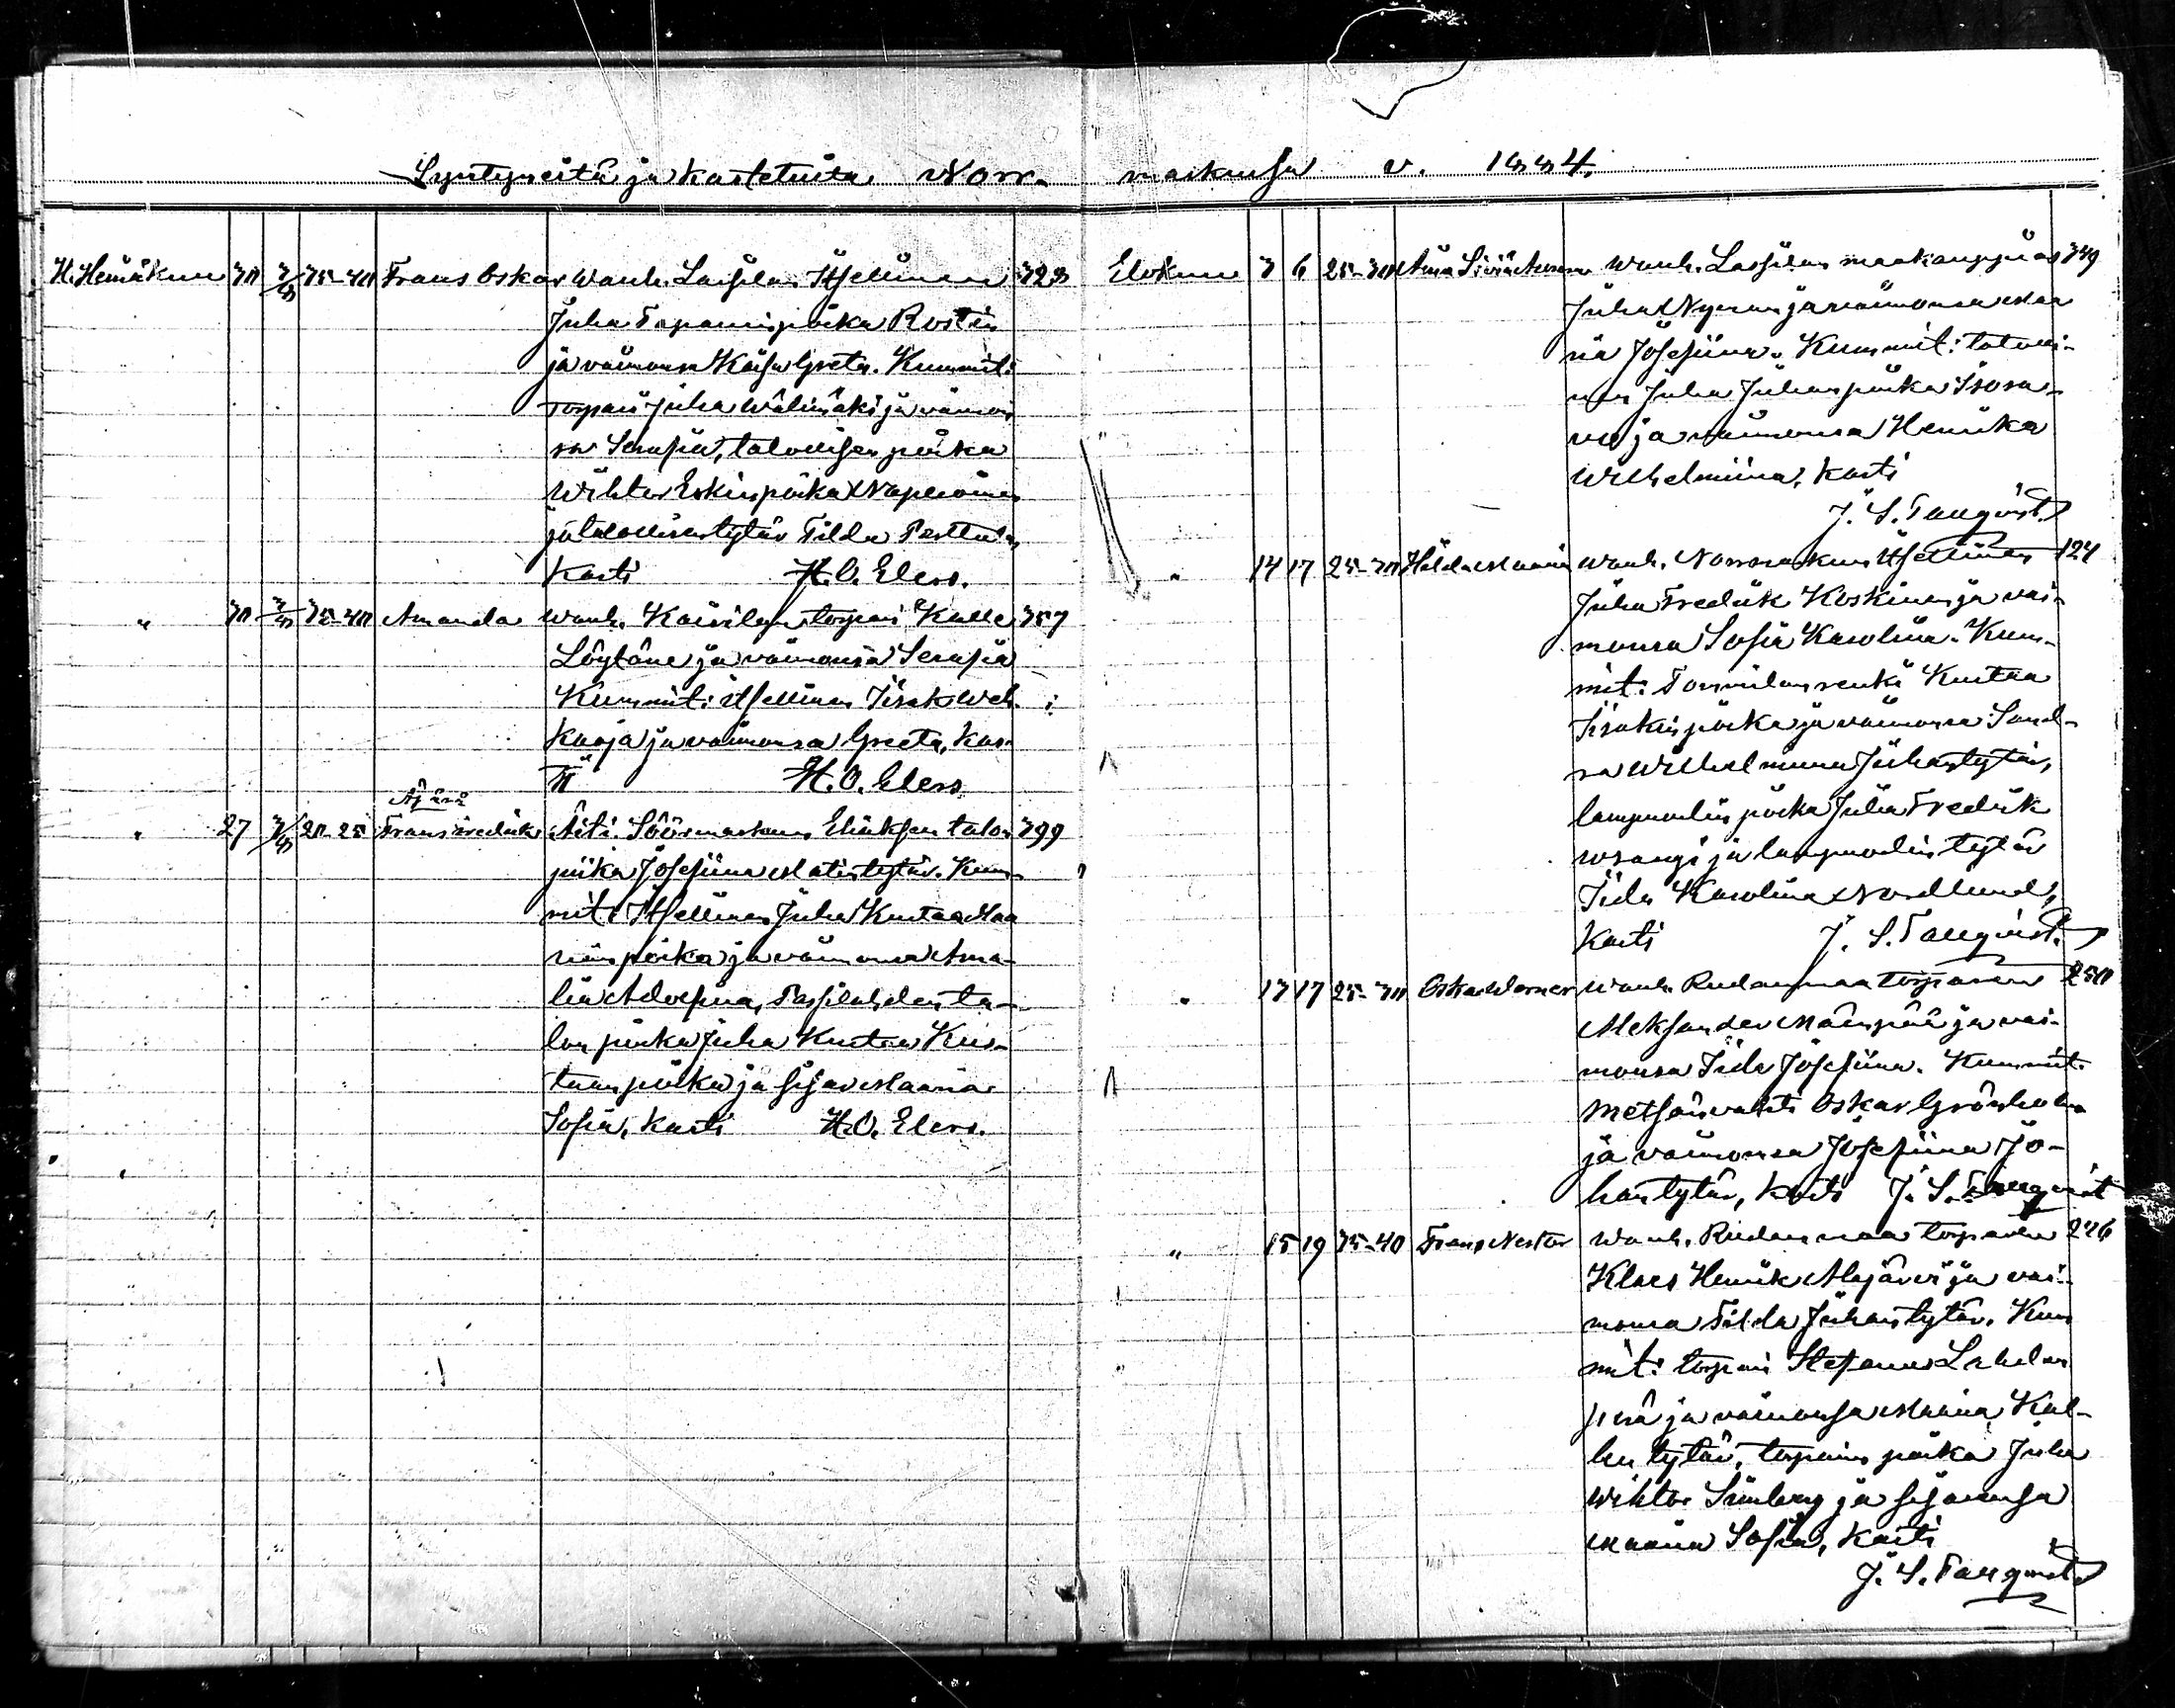 Syntyneitä ja kastetuita Norr-
H. Heinäkuu 30 3/8 35-40 Frans Oskar Wanh. Lassilan Itsellinen 323
Juha Tapaninpoika Rostin
ja vaimonsa Kaisa Greta. Kummit:
torpari Juha Wälimäki ja vaimon
sa Serafia, talollisen poika
Wihtor Eskinpoika
ja talollisentytär Tilda Perttula,
Kasti H. O. Elers.
" 30 3/8 35-40 Amanda Wanh. Kairilan torpari Kalle 357
Löytäne ja vaimonsa Serafia
Kummit: itsellinen Iisak Weh-
kaoja ja vaimonsa Greeta, Kas-
ti H. O. Elers
Äpärä
" 27 3/8 20-25 Frans Fredrik Äiti: Söörmarkun talon 399
piika Josefiina Matintytär. Kum-
mit: Itsellinen Juha Kustaa Maa
poika ja vaimonsa Ama-
lia Adolfiina, ta-
lon poika Juha Kustaa Kus-
taanpoika ja sisar Maaria
Sofia, Kasti H. O. Elers.
markussa v. 1884.
Elokuu 3 6 25-30 Wanh. Lassilan maakauppias 349
Juha Nyman ja vaimonsa Maa
ria Josefiina. Kummit: talolli-
nen Juha Juhanpoika Isosa-
vi ja vaimonsa Henrika
Wilhelmiina, Kasti
J. S. Tallqvist
" 14 17 25-30 Hilda Maaria Wanh. Norrmarkun Itsellinen 124
Juha Fredrik Koskinen ja vai-
monsa Sofia Karolina. Kum-
mit: Tommilan renki Kustaa
Iisakinpoika ja vaimonsa Sand-
ra Wilhelmiina Juhantytär,
lampuodin poika Juha Fredrik
ja lampuodin tytär
Iida Karolina Nordlund,
Kasti J. S. Tallqvist.
" 13 17 25-30 Oskar Werner Wanh. Rudanmaa torparin 250
Aleksander Mäenpää ja vai-
monsa Iida Josefiina. Kummit:
Metsänvahti Oskar Grönholm
ja vaimonsa Josefiina Jo-
hantytär, Kasti J. S. Tallqvist
" 15 19 35-40 Frans Nestor Wanh. Rudanmaa torparin 246
Klaes Henrik Alajärvi ja vai-
monsa Tilda Juhantytär. Kum
mit: torpari Stefanus Lahden
perä ja vaimonsa Maaria Kal-
len tytär, torparin poika Juha
Wihtor Simberg ja sisarensa
Maaria Sofia, Kasti
J. S. Tallqvist